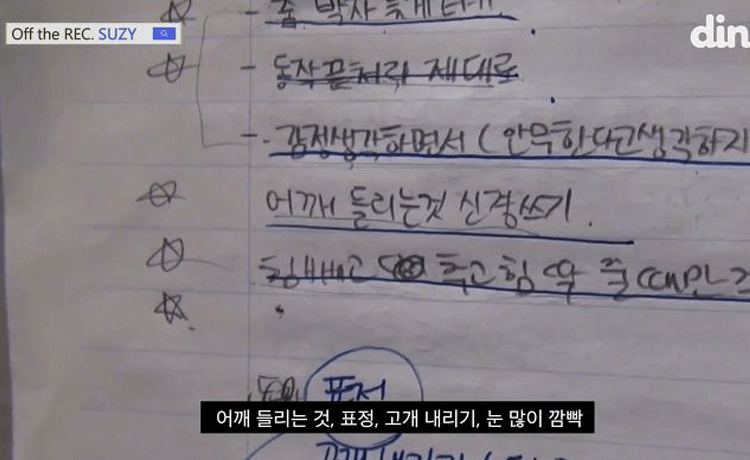 Off the REC. SUZY
din
- 춤 박자 늦게타
- 동작끝처리 제대로
- 감정생각하면서 (안무한다고생각하지
어깨 들리는것 신경쓰기.
힘빼고 힘 딱 줄때만
표정
어깨 들리는 것, 표정, 고개 내리기, 눈 많이 깜빡
고개 내리기